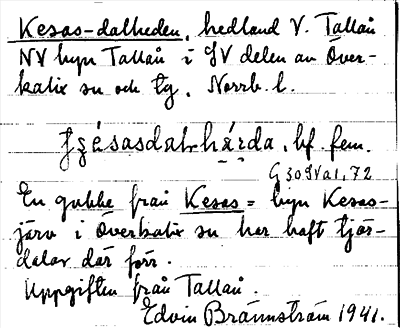 Kesas-dalheden, hedland V. Tallån
NV byn Tallån i SV delen av Över-
kalix sn och tg. Norrb. l.
hárda, bf. fem.
G 30 SV a 1, 72
En gubbe från Kesas = byn Kesas-
järv i Överkalix sn har haft tjär-
dalar där förr.
Uppgiften från Tallån.
Edvin Brännström 1941.